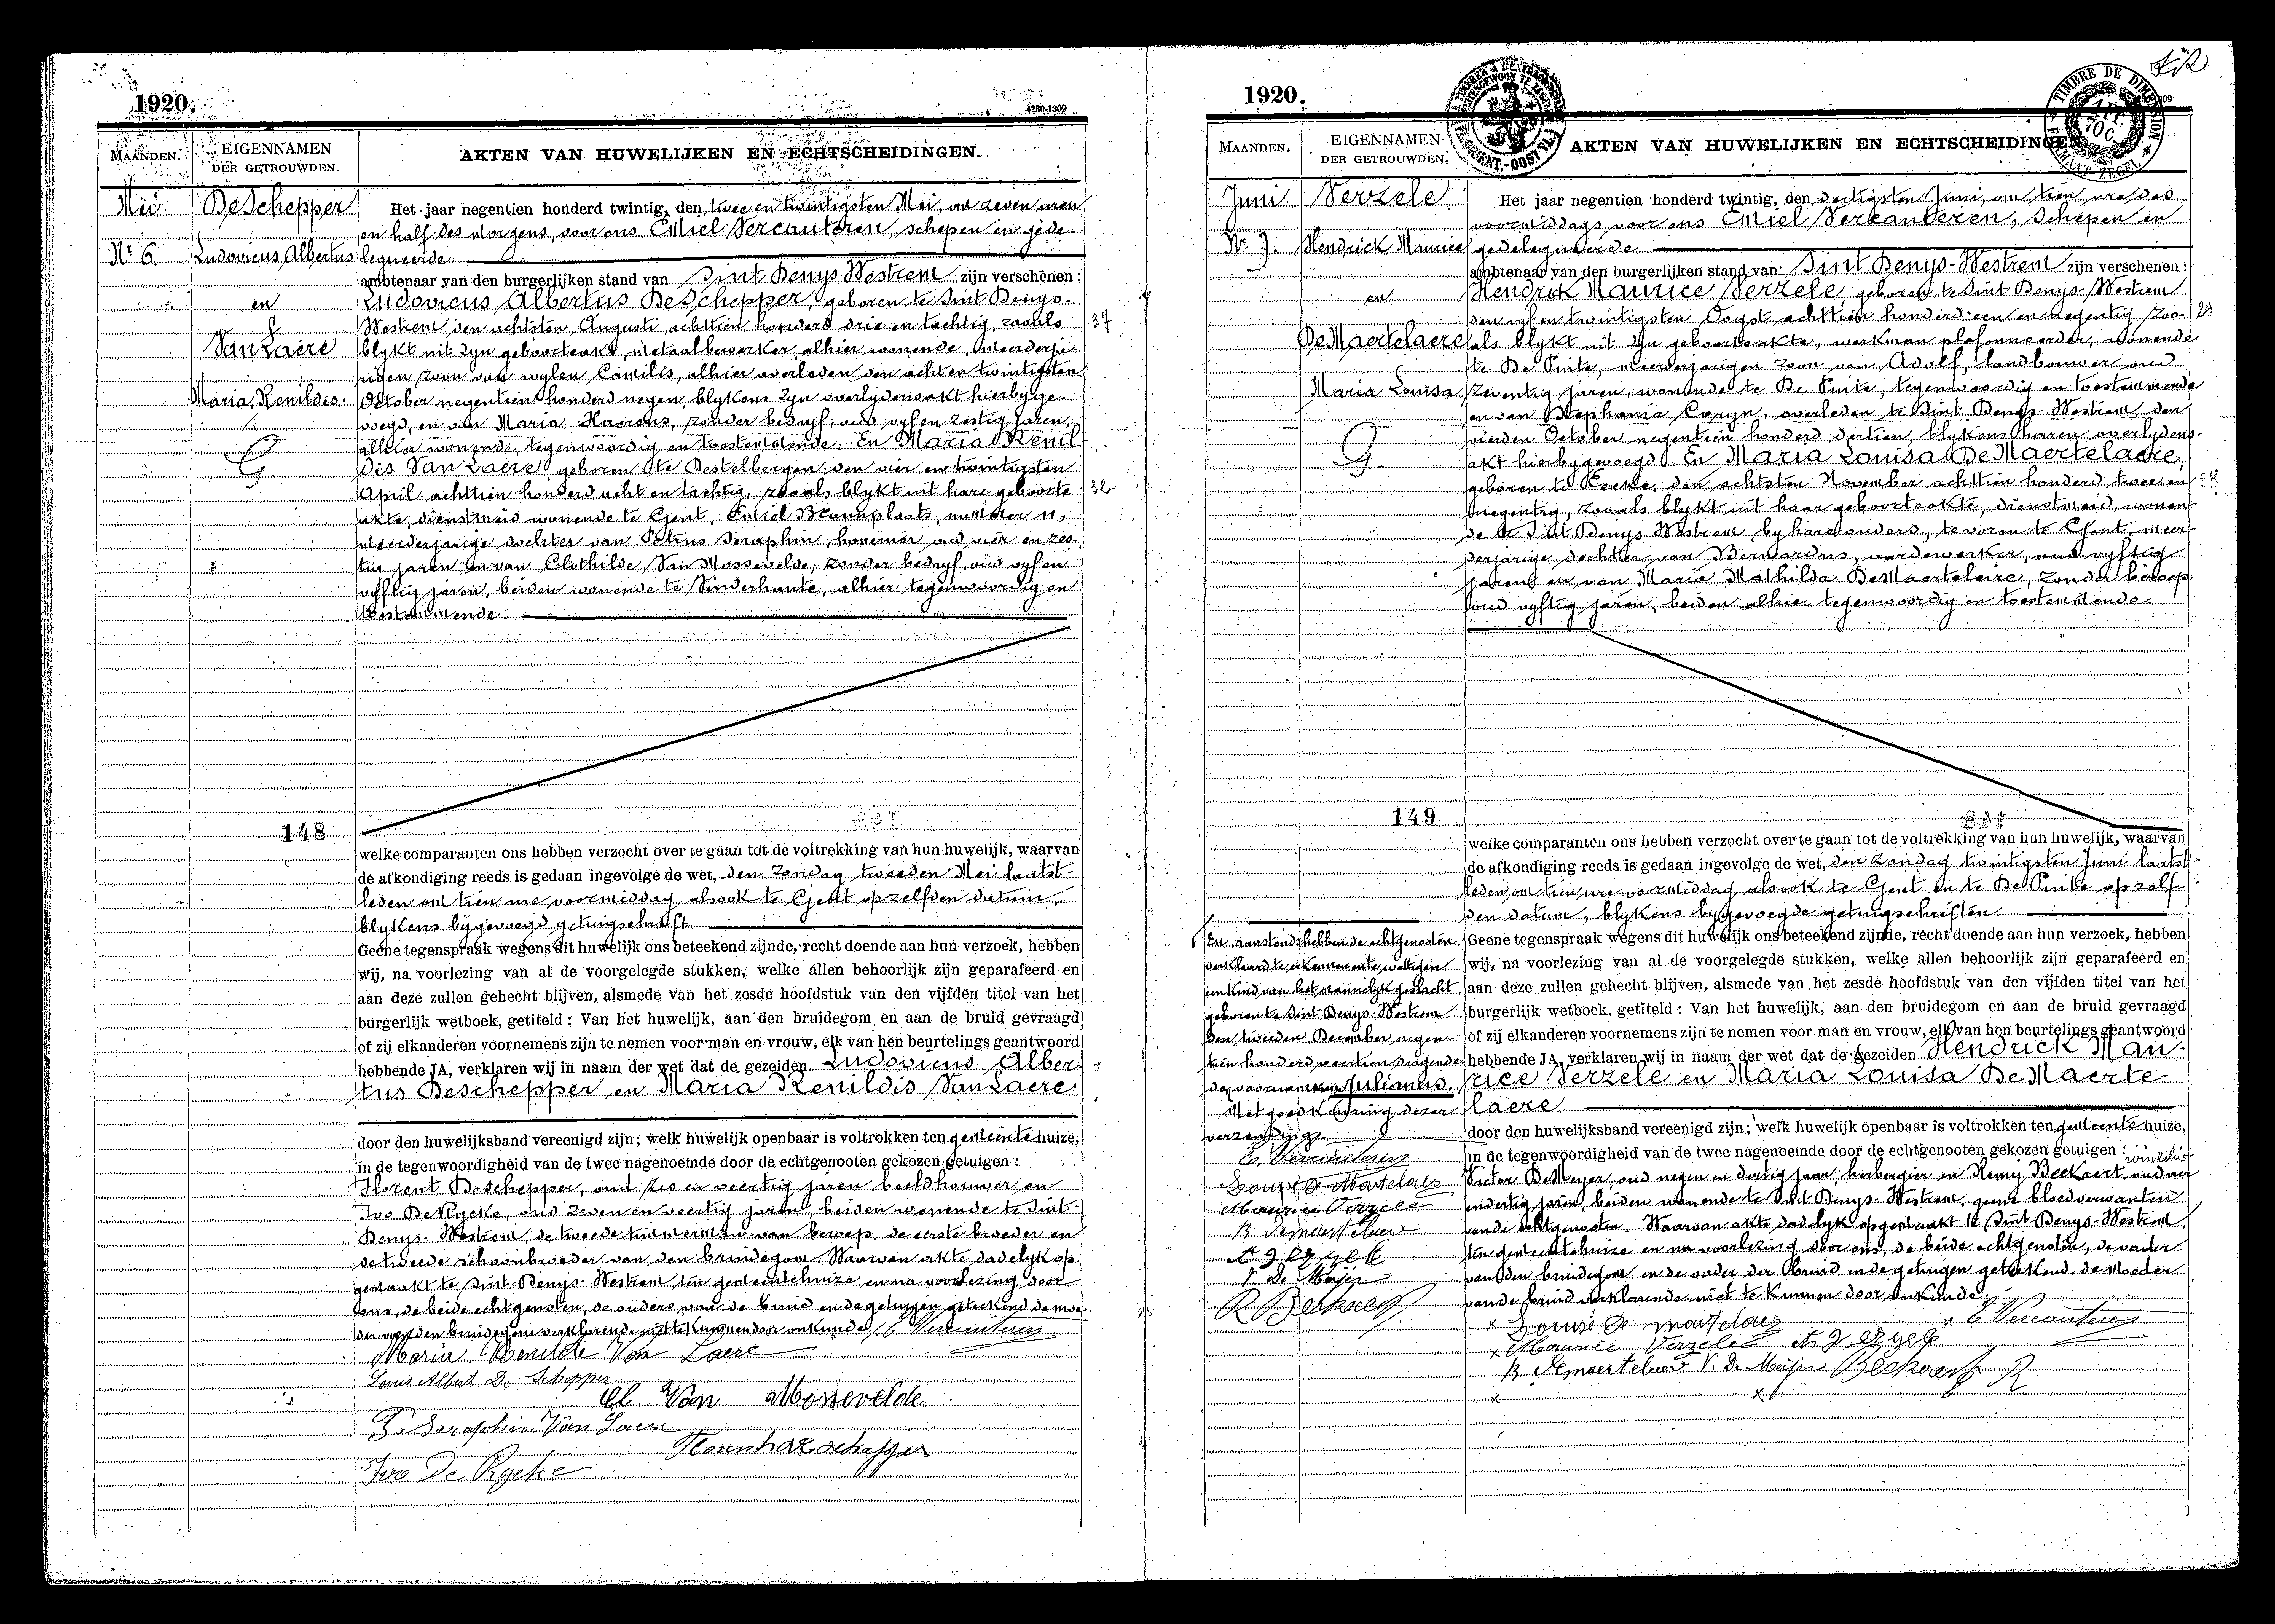 1920.
4230-1309
MAANDEN.
EIGENNAMEN
DER GETROUWDEN.
AKTEN VAN HUWELIJKEN EN ECHTSCHEIDINGEN.
Mei
Nr 6.
DeSchepper
Ludovicus Albertus
en
Van Laere
Maria Renildis.
G.
Het jaar negentien honderd twintig, den twee en twintigsten Mei, om zeven uren
en half des morgens, voor ons Emiel Vercauteren, schepen en gede-
legueerde
ambtenaar van den burgerlijken stand van Sint Denys Westrem zijn verschenen:
Ludovicus Albertus DeSchepper, geboren te Sint Denys-
Westrem den achtsten Augusti achttien honderd drie en tachtig, zooals 37
blykt uit zyn geboorteakt, metaalbewerker, alhier wonende, meerderja-
rigen zoon van wylen Camilis, alhier overleden den acht en twintigsten
October negentien honderd negen, blykens zyn overlydensakt hierbyge-
voegd, en van Maria Haerens, zonder bedryf, oud vyf en zestig jaren,
alhier wonende, tegenwoordig en toestemmende. En Maria Renil
dis Van Laere, geboren te Destelbergen den vier en twintigsten
April achttien honderd acht en tachtig, zooals blykt uit hare geboorte 32
akte, dienstmeid wonende te Gent, Emiel Braunplaats, nummer 11,
meerderjarige dochter van Petrus Seraphin, hovenier oud vier en zes-
tig jaren en van Clothilde Van Mossevelde, zonder bedryf, oud vyf en
vyftig jaren, beiden wonende te Vinderhaute, alhier tegenwoordig en
toestemmende.
148
welke comparanten ons hebben verzocht over te gaan tot de voltrekking van hun huwelijk, waarvan
de afkondiging reeds is gedaan ingevolge de wet, den Zondag tweeden Mei laatst-
leden om tien ure voormiddag alsook te Gent op zelfden datum,
blykens bygevoegd getuigschrift
Geene tegenspraak wegens dit huwelijk ons beteekend zijnde, recht doende aan hun verzoek, hebben
wij, na voorlezing van al de voorgelegde stukken, welke allen behoorlijk zijn geparafeerd en
aan deze zullen gehecht blijven, alsmede van het zesde hoofdstuk van den vijfden titel van het
burgerlijk wetboek, getiteld : Van het huwelijk, aan den bruidegom en aan de bruid gevraagd
of zij elkanderen voornemens zijn te nemen voor man en vrouw, elk van hen beurtelings geantwoord
hebbende JA, verklaren wij in naam der wet dat de gezeiden Ludovicus Alber
tus Deschepper en Maria Renildis Van Laere
door den huwelijksband vereenigd zijn; welk huwelijk openbaar is voltrokken ten gemeentehuize,
in de tegenwoordigheid van de twee nagenoemde door de echtgenooten gekozen getuigen :
Florent Deschepper, oud zes en veertig jaren beeldhouwer en
Ivo De Rycke, oud zeven en veertig jaren, beiden wonende te Sint-
Denys-Westrem, de tweede timmerman van beroep, de eerste broeder en
de tweede schoonbroeder van den bruidegom. Waarvan akte dadelyk op-
gemaakt te Sint-Denys-Westrem, ten gemeentehuize en na voorlezing door
ons, de beide echtgenoten, de ouders van de bruid en de getuigen geteekend de moe-
der van den bruidegom verklarende niet te kunnen door onkunde. E Vercauteren
Maria Renilde Van Laere
Louis Albert De Schepper
Cl Van Mossevelde
P. Seraphin Van Laere
Ivo De Rycke
1920.
MAANDEN.
EIGENNAMEN
DER GETROUWDEN.
AKTEN VAN HUWELIJKEN EN ECHTSCHEIDINGEN.
TIMBRE DE DIMENSION
70 C.
Juni
Nr 7.
Verzele
Hendrick Maurice
en
DeMaertelaere
Maria Louisa
G.
Het jaar negentien honderd twintig, den dertigsten Juni, om tien ure des
voormiddags voor ons Emiel Vercauteren, schepen en
gedelegueerde
ambtenaar van den burgerlijken stand van Sint Denys-Westrem zijn verschenen:
Hendrick Maurice Verzele, geboren te Sint-Denys-Westrem
den vyf en twintigsten Oogst achttien honderd een en negentig, zoo-
als blykt uit zyn geboorteakte, werkman plafonneerder, wonende
te De Pinte, meerderjarigen zoon van Adolf, landbouwer oud
zeventig jaren, wonende te De Pinte, tegenwoordig en toestemmende
en van Stephania Coryn, overleden te Sint Denys-Westrem, den
vierden October negentien honderd dertien, blykens haren overlydens-
akt hierbygevoegd. En Maria Louisa DeMaertelaere,
geboren te den achtsten November achttien honderd twee en
negentig, zooals blykt uit haar geboorteakte, dienstmeid, wonen-
de te Sint Denys Westrem by hare ouders, te voren te Gent, meer-
derjarige dochter van Bernardus, aardewerker, oud vyftig
jaren en van Maria Mathilda DeMaertelaire, zonder beroep,
oud vyftig jaren, beiden alhier tegenwoordig en toestemmende.
149
welke comparanten ons hebben verzocht over te gaan tot de voltrekking van hun huwelijk, waarvan
de afkondiging reeds is gedaan ingevolge de wet, den Zondag twintigsten Juni laatst-
leden, om tien ure voormiddag alsook te Gent en te De Pinte op zelf-
den datum, blykens bygevoegde getuigschriften
Geene tegenspraak wegens dit huwelijk ons beteekend zijnde, recht doende aan hun verzoek, hebben
wij, na voorlezing van al de voorgelegde stukken, welke allen behoorlijk zijn geparafeerd en
aan deze zullen gehecht blijven, alsmede van het zesde hoofdstuk van den vijfden titel van het
burgerlijk wetboek, getiteld : Van het huwelijk, aan den bruidegom en aan de bruid gevraagd
of zij elkanderen voornemens zijn te nemen voor man en vrouw, elk van hen beurtelings geantwoord
hebbende JA, verklaren wij in naam der wet dat de gezeiden Hendrick Mau-
rice Verzele en Maria Louisa DeMaerte
laere
door den huwelijksband vereenigd zijn; welk huwelijk openbaar is voltrokken ten gemeentehuize,
in de tegenwoordigheid van de twee nagenoemde door de echtgenooten gekozen getuigen :
Victor DeMeyer oud negen en dertig jaar herbergier en Remy Beekaert, oud vier
en dertig jaren, beiden wonende te Sint Denys-Westrem, geene bloedverwanten
van de echtgenoten. Waarvan akte dadelyk opgemaakt te Sint-Denys-Westrem
ten gemeentehuize en na voorlezing door ons, de beide echtgenoten, de vader
van den bruidegom en de vader der bruid en de getuigen geteekend, de moeder
van de bruid verklarende niet te kunnen door onkunde.
E Vercauteren
Maurice Verzele
V. De Meijer
En aanstonds hebben de echtgenoten
verklaard te erkennen en te wettigen
een kind van het mannelyk geslacht
geboren te Sint-Denys-Westrem
den tweeden December negen-
tien honderd veertien dragende
de voornamen Julianus.
Met goedkeuring dezer
verzending.
E. Vercauteren
Maurice Verzele
V. De Meijer